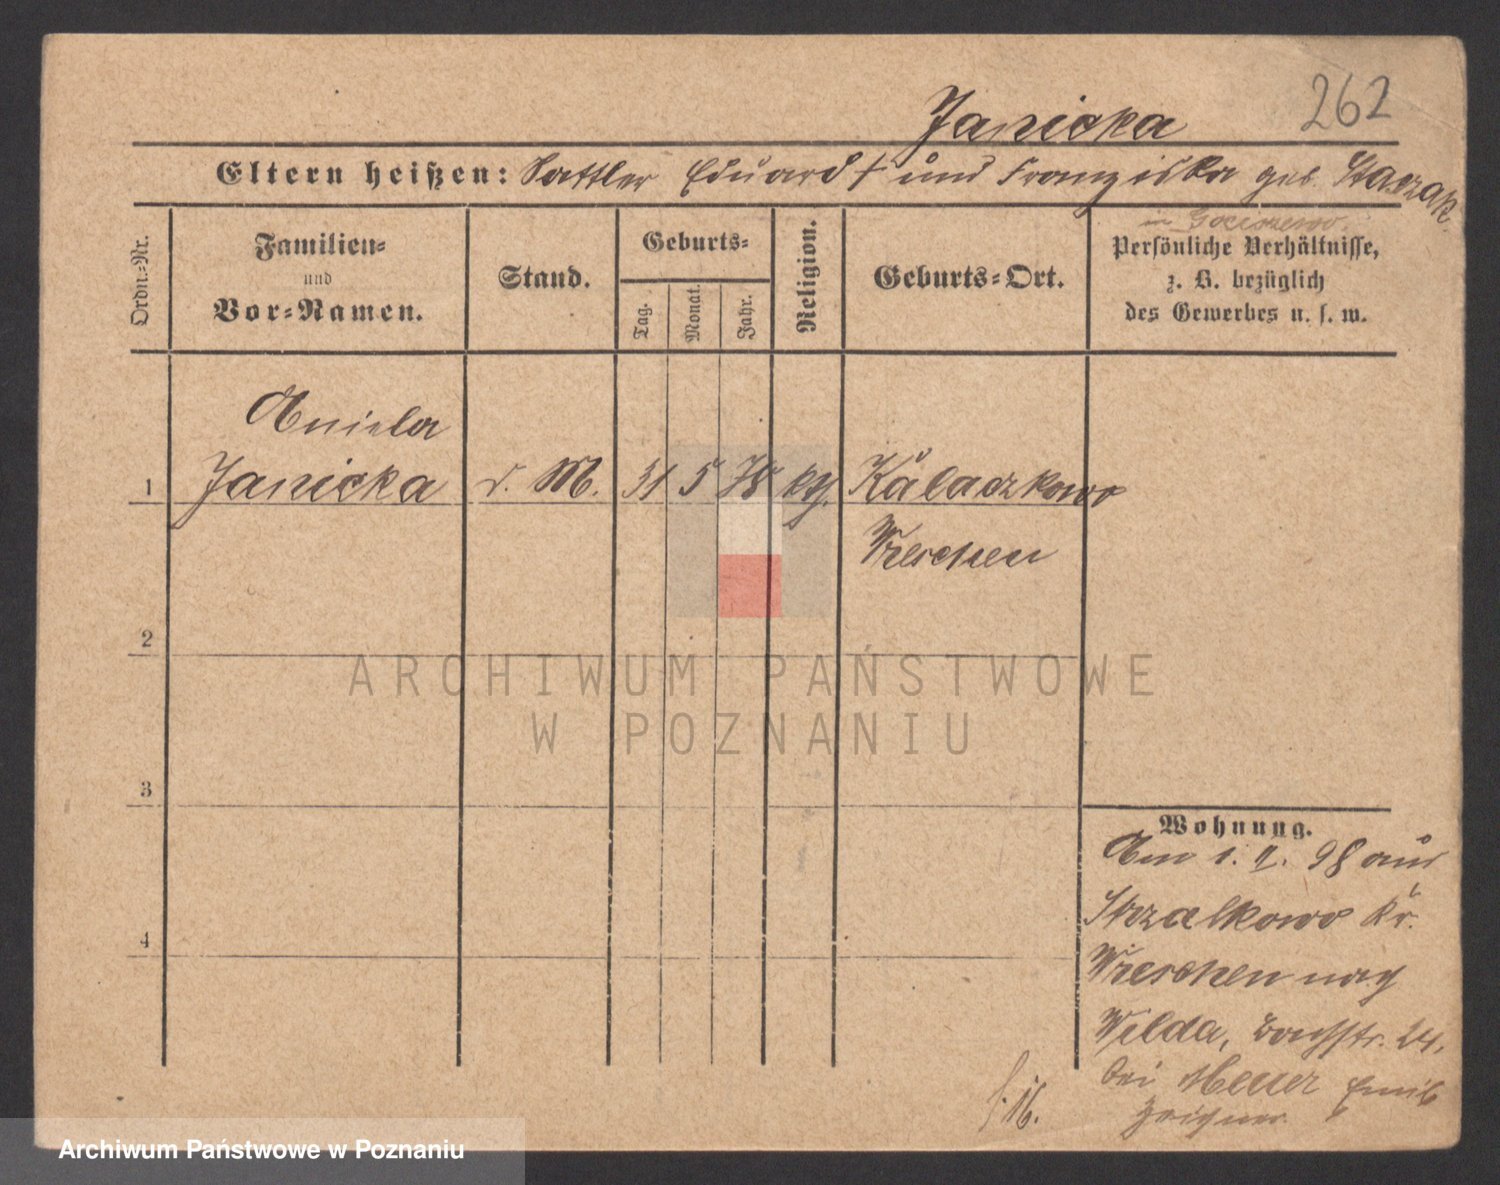 262
Janicka
Eltern heißen: Sattler Eduard † und Franziska geb. Staszak
in
Ordn.-Nr.
Familien-
und
Vor-Namen.
Stand.
Geburts-
Tag.
Monat.
Jahr.
Religion.
Geburts-Ort.
Persönliche Verhältnisse,
z. B. bezüglich
des Gewerbes u. s. w.
Aniela
1 Janicka d. M. 31 5 78 kth. Kolaczkowo
Wreschen
2
3
4
Wohnung.
Am 1. 98 aus
Strzalkowo Kr.
Wreschen nach
Wilda, Bachstr. 24,
bei Meller Emil
16.
ARCHIWUM PAŃSTWOWE
W POZNANIU
Archiwum Państwowe w Poznaniu